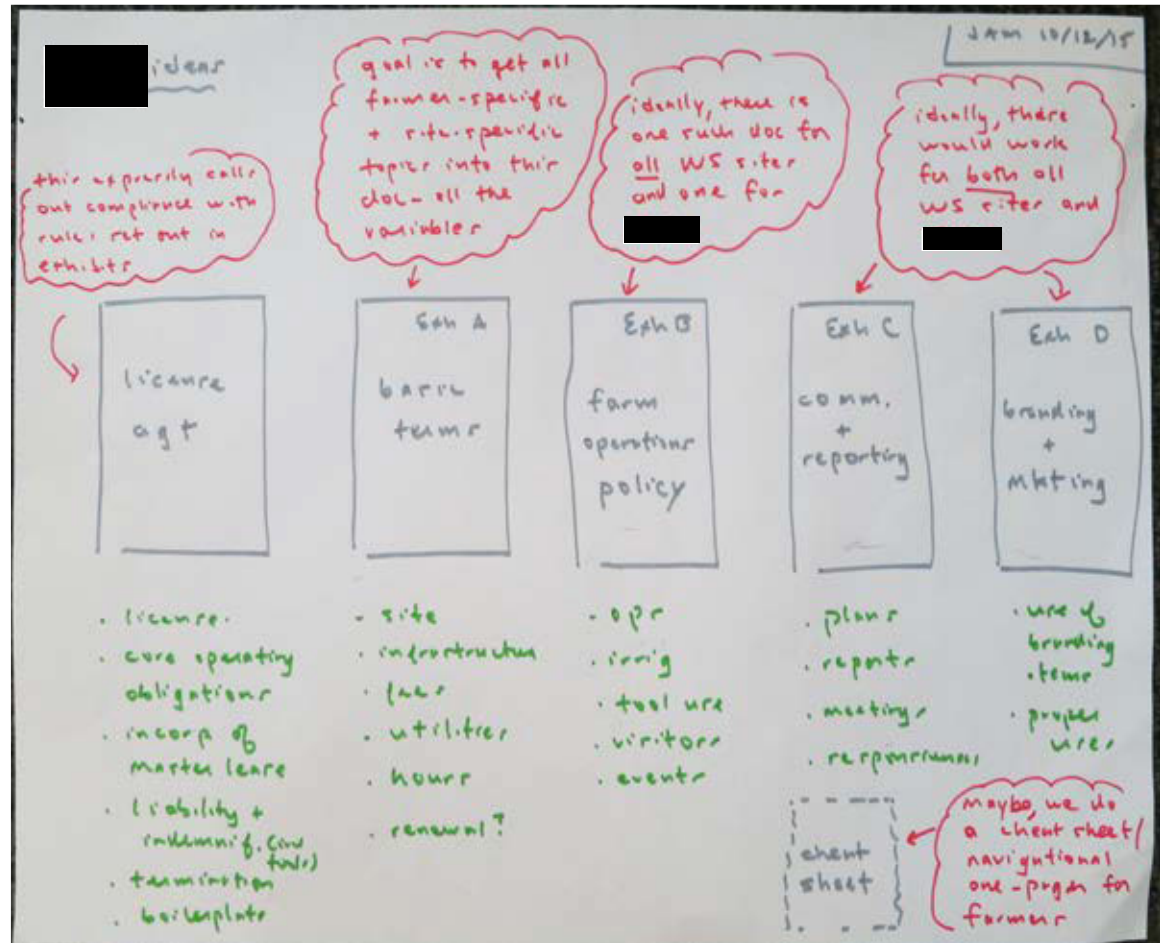 ideas
JAM 10/12/15
this expressly calls
out compliance with
rules set out in
exhibits
goal is to get all
farmer-specific
+ site-specific
topics into this
doc - all the
variables
ideally, there is
one such doc for
all WS sites
and one for
ideally, these
would work
for both all
WS sites and
license
agt
Exh A
basic
terms
Exh B
farm
operations
policy
Exh C
comm.
+
reporting
Exh D
branding
+
mkting
· license
· core operating
obligations
· incorp of
master lease
· liability +
indemnif.
· termination
· boilerplate
- site
· infrastructure
· fees
· utilities
· hours
· renewal?
- ops
· irrig
· tool use
· visitors
· events
· plans
· reports
· meetings
· responsiveness
· use of
branding
items
· proper
uses
cheat
sheet
Maybe, we do
a cheat sheet/
navigational
one-pager for
farmers